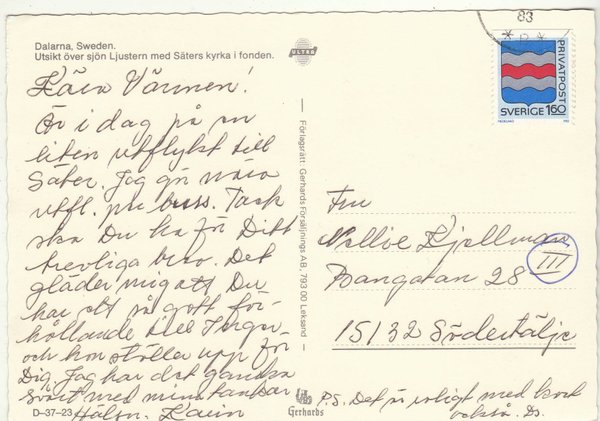 Dalarna, Sweden.
Utsikt över sjön Ljustern med Säters kyrka i fonden.
ULTRA
83
PRIVATPOST
SVERIGE 160
Kära Vännen!
Är i dag på en
liten utflykt till
Säter. Jag gör
utfl. per buss. Tack
ska Du ha för Ditt
trevliga brev. Det
gläder mig att Du
har det så gott för-
hållande till Inger
och hon ställer upp för
Dig. Jag har det ganska
svårt med mina tankar
Hälsn. Karin
Förlagsrätt: Gerhards Försäljnings AB, 793 00 Leksand
Fru
Kjellman
III
Bangatan 28
15132 Södertälje
P.S. Det är roligt med kort
också. Ds.
D–37–23
Gerhards